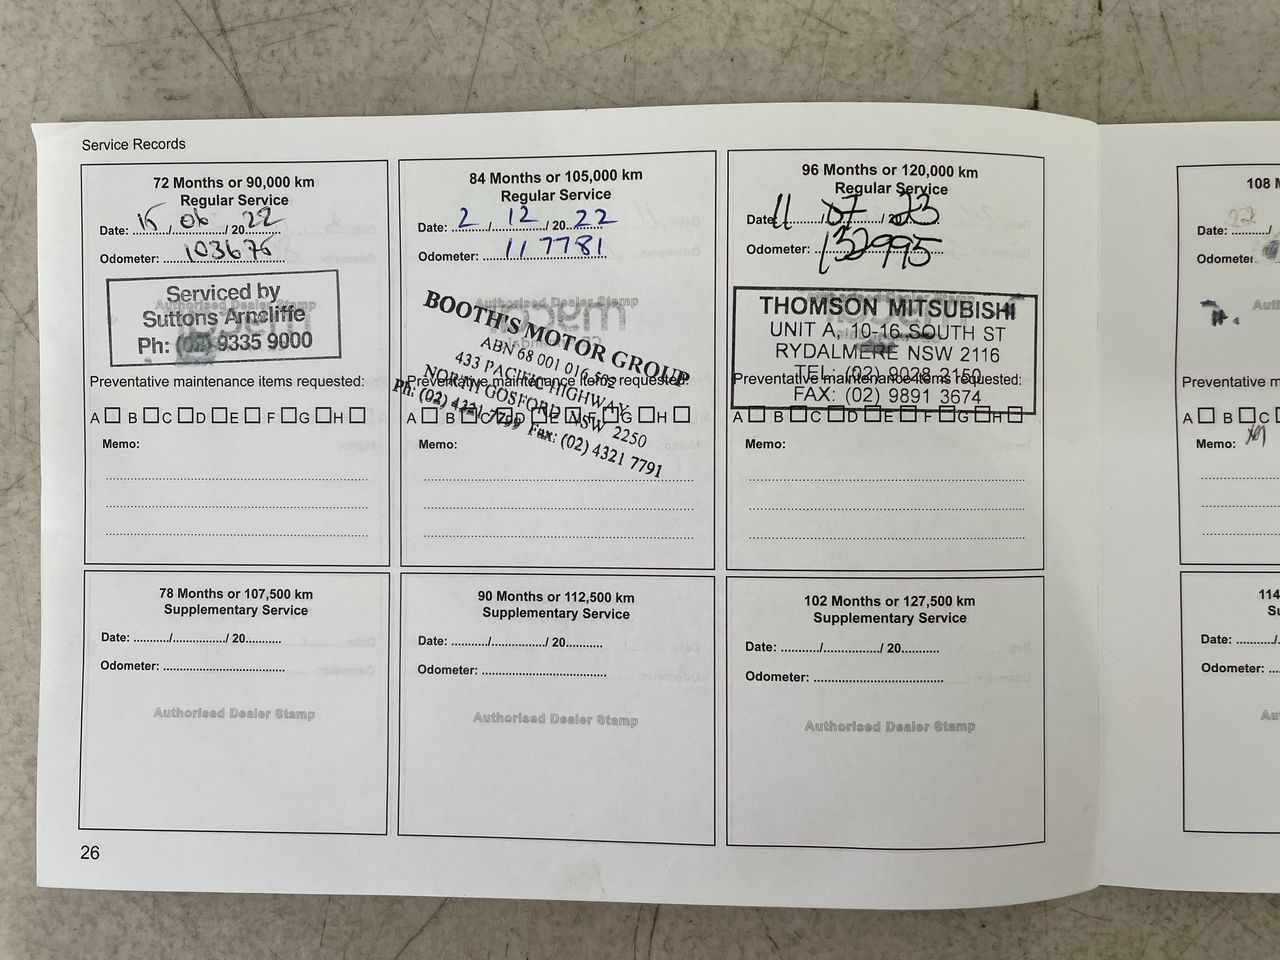 Service Records
72 Months or 90,000 km
Regular Service
Date: 15 / 06 / 20 22
Odometer: 103676
Authorised Dealer Stamp
Serviced by
Suttons Arncliffe
Ph: (02) 9335 9000
Preventative maintenance items requested:
A B C D E F G H
Memo:
84 Months or 105,000 km
Regular Service
Date: 2 / 12 / 20 22
Odometer: 117781
Authorised Dealer Stamp
BOOTH'S MOTOR GROUP
ABN 68 001 016 502
433 PACIFIC HIGHWAY
NORTH GOSFORD NSW 2250
Ph: (02) 4321 7799 Fax: (02) 4321 7791
Preventative maintenance items requested:
A B C D E F G H
Memo:
96 Months or 120,000 km
Regular Service
Date: 11 / 07 / 20 23
Odometer: 132995
THOMSON MITSUBISHI
UNIT A, 10-16 SOUTH ST
RYDALMERE NSW 2116
TEL: (02) 9028 2150
FAX: (02) 9891 3674
Preventative maintenance items requested:
A B C D E F G H
Memo:
108
Date: /
Odometer
Preventative m
A B C
Memo:
78 Months or 107,500 km
Supplementary Service
Date: / / 20
Odometer:
Authorised Dealer Stamp
90 Months or 112,500 km
Supplementary Service
Date: / / 20
Odometer:
Authorised Dealer Stamp
102 Months or 127,500 km
Supplementary Service
Date: / / 20
Odometer:
Authorised Dealer Stamp
114
Date: /
Odometer:
26